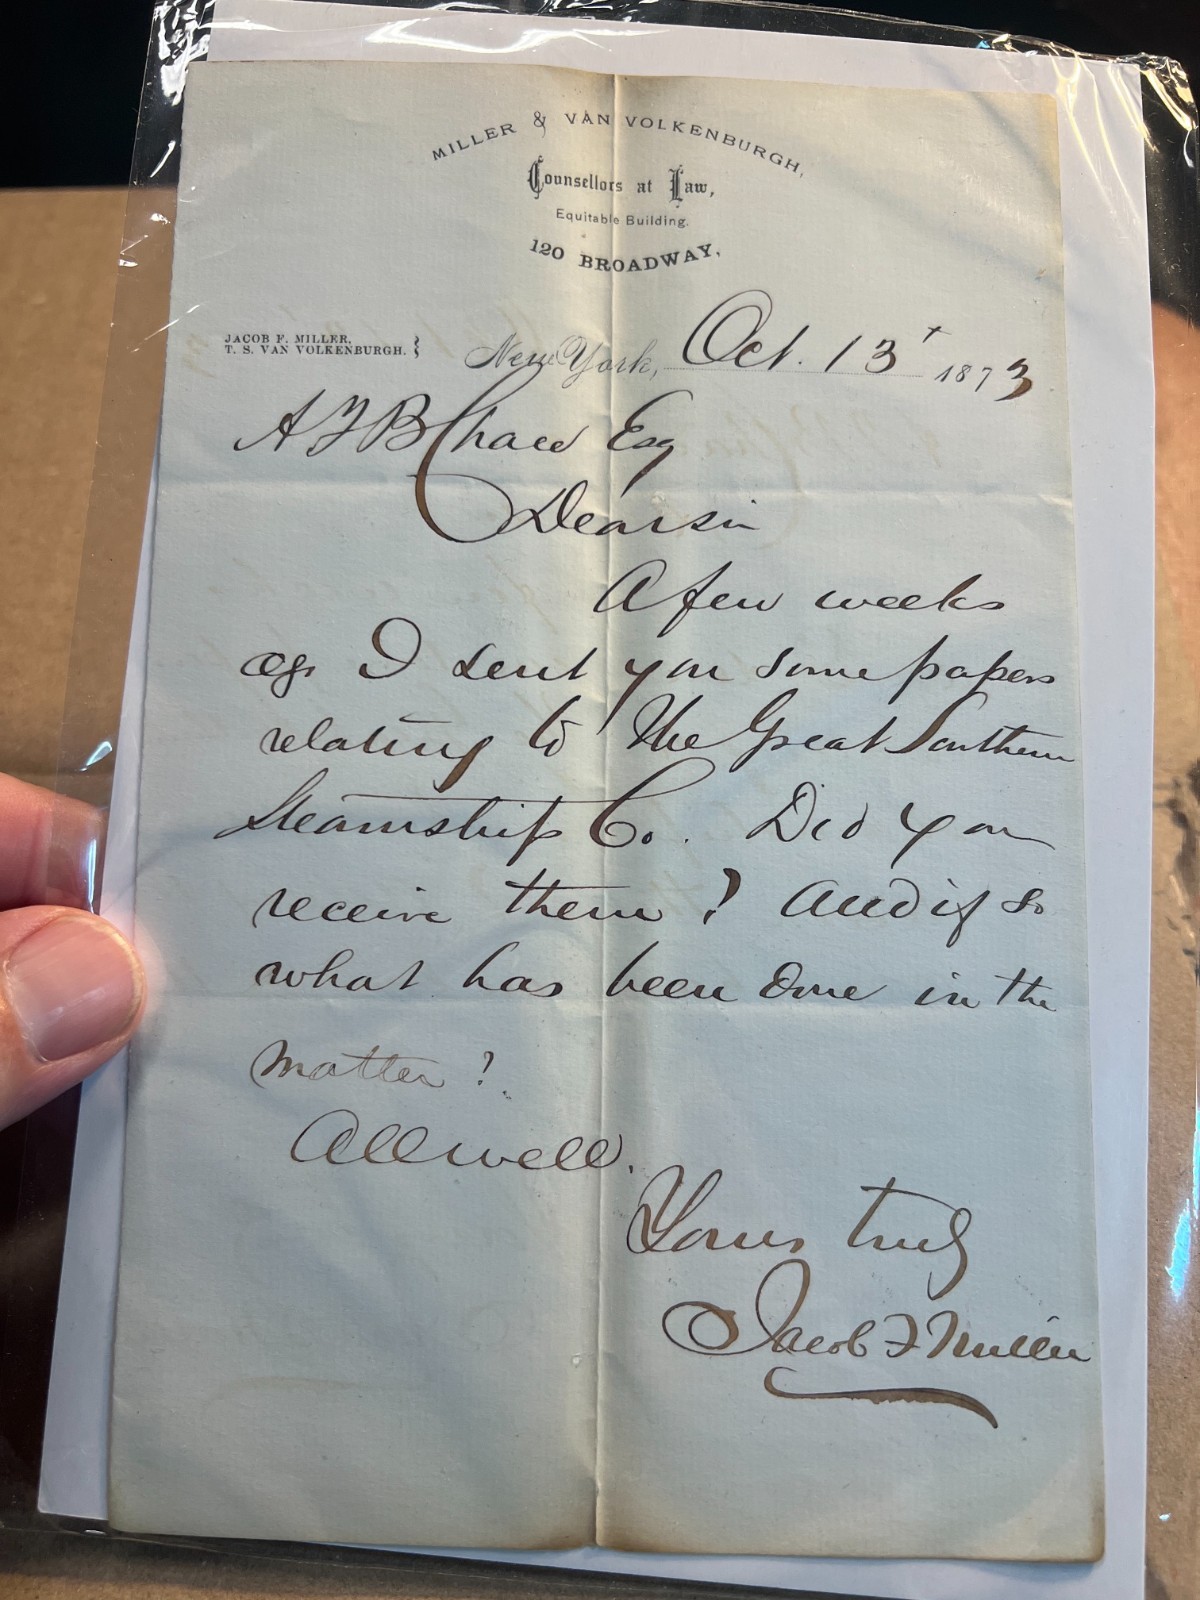 MILLER & VAN VOLKENBURGH,
Counsellors at Law,
Equitable Building.
120 BROADWAY.
JACOB F. MILLER,
T. S. VAN VOLKENBURGH.
New York, Oct. 13 1873
A J B Chace Esq
Dear sir
A few weeks
ago I sent you some papers
relating to The Great Southern
Steamship Co. Did you
receive them? And if so
what has been done in the
matter?
All well.
Yours truly
Jacob F Miller